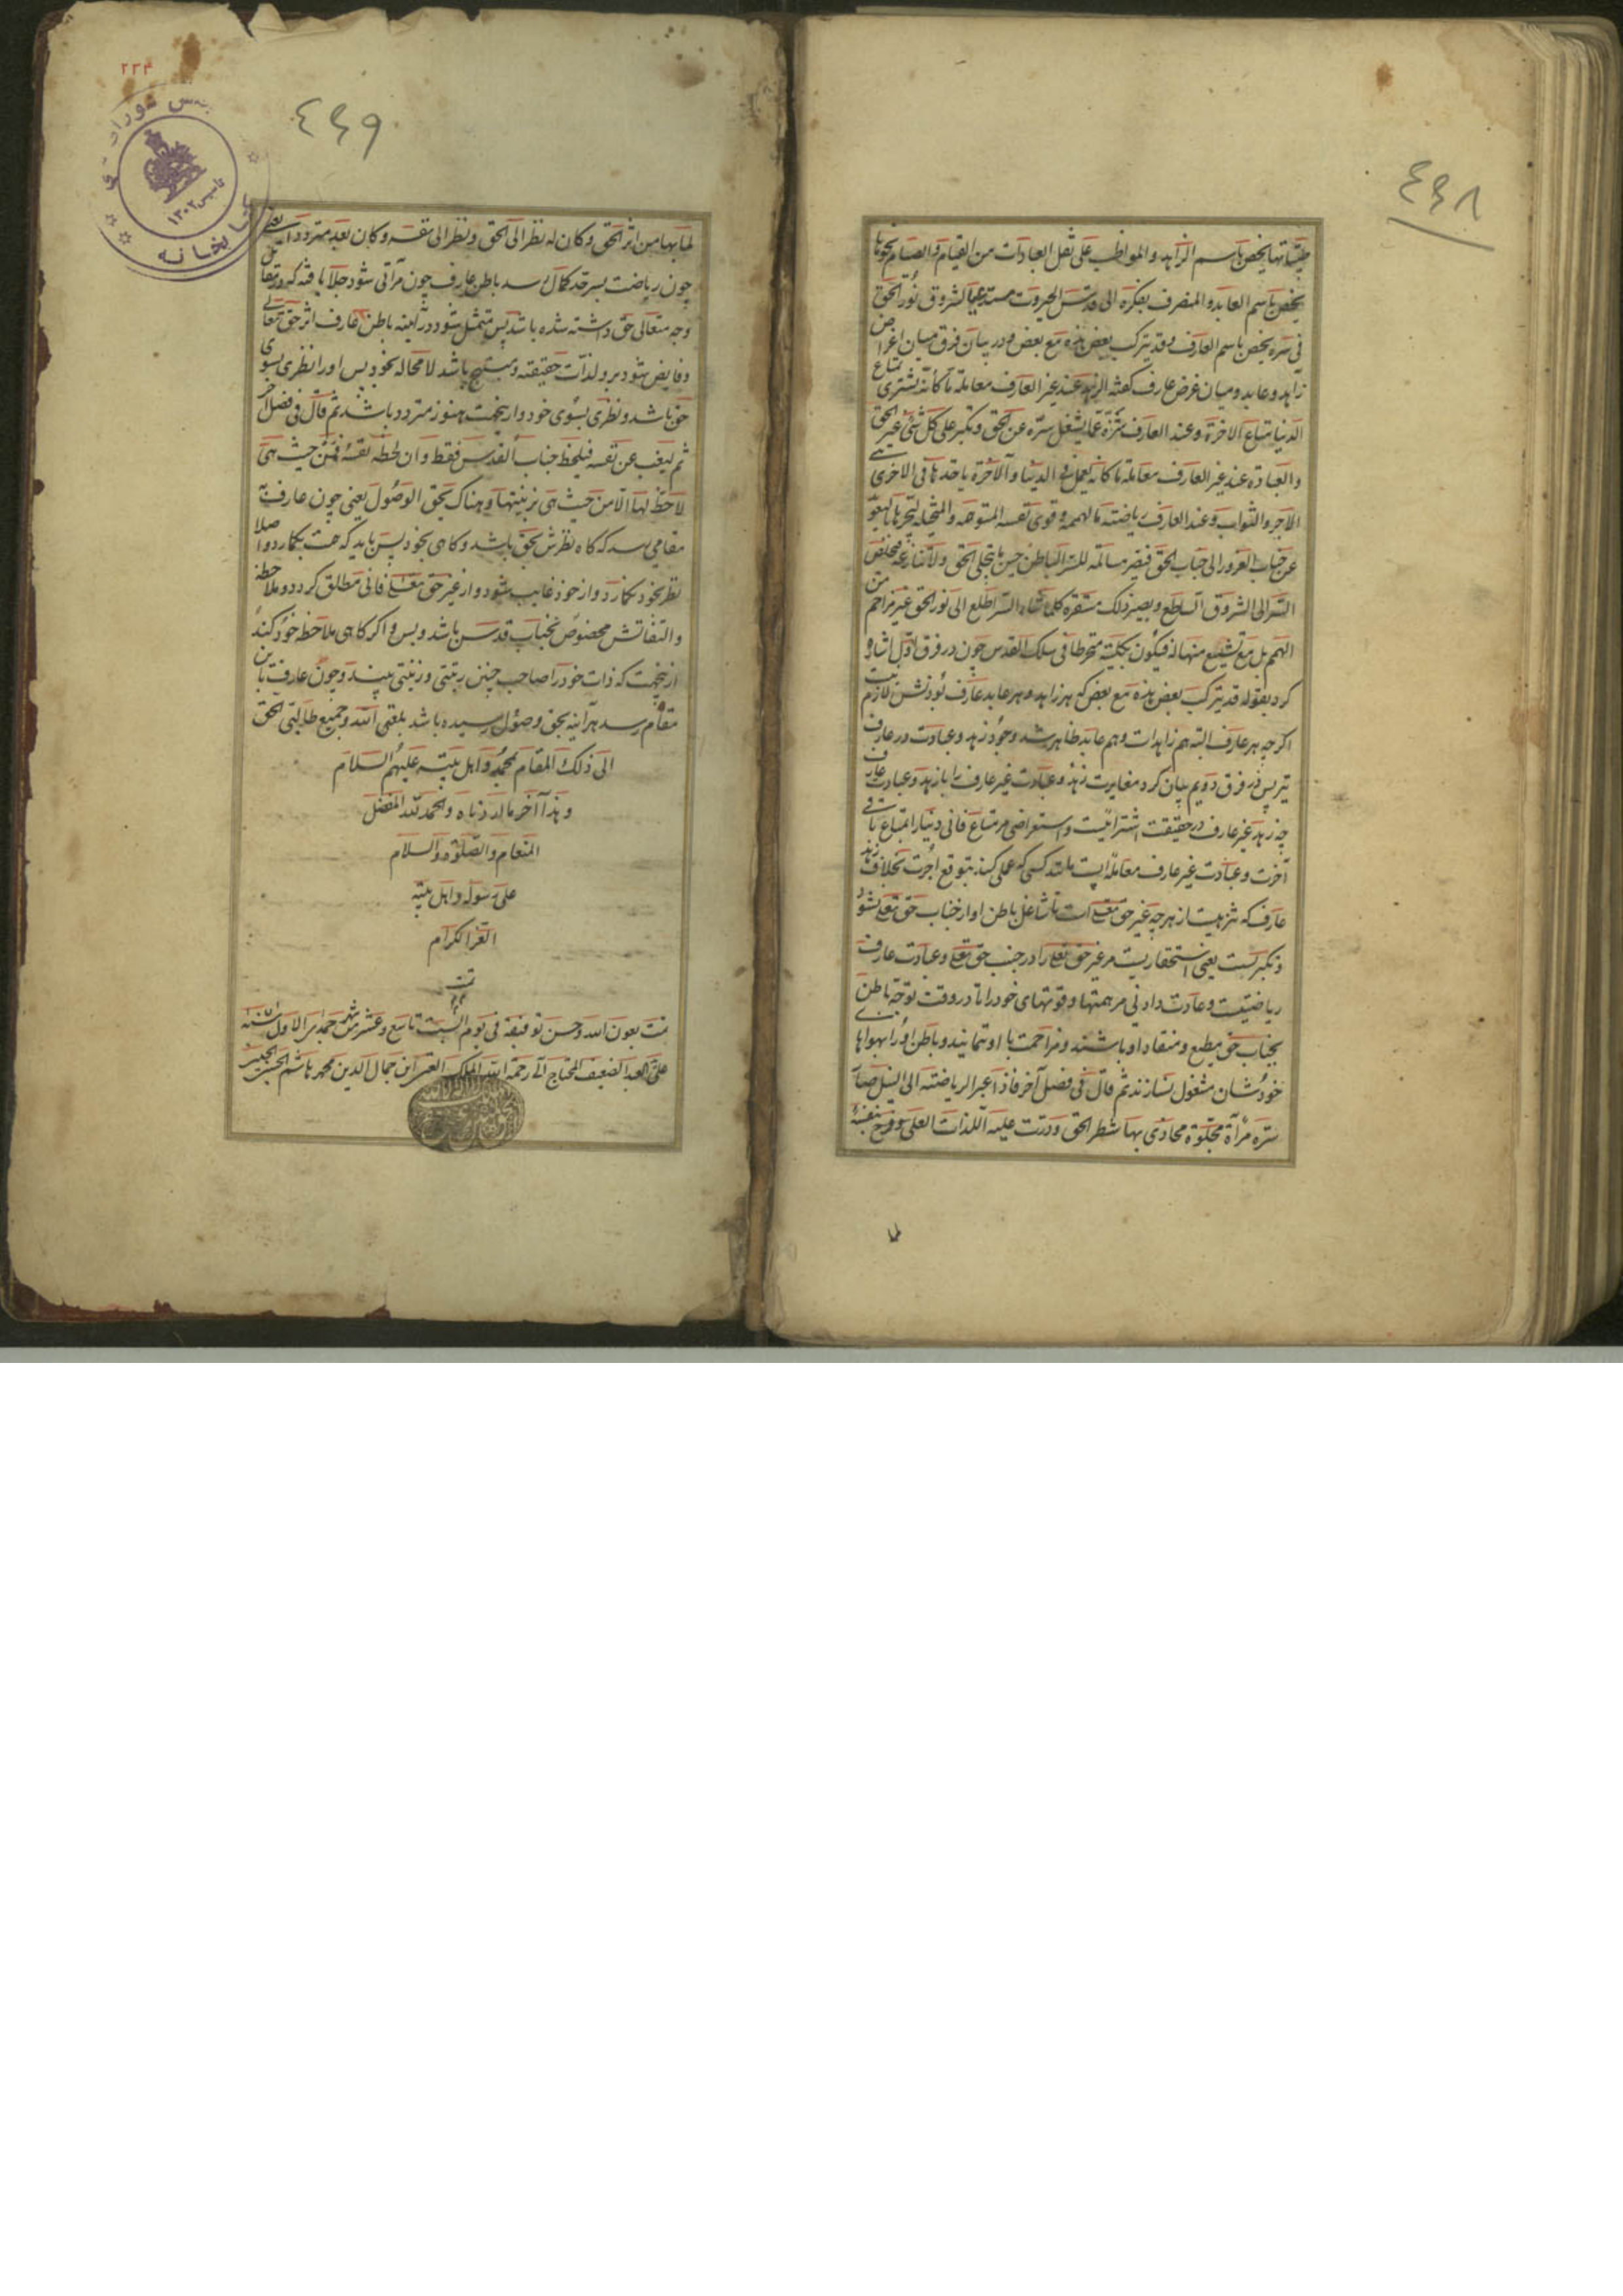 ٤٤٨
طیباتها یخص باسم الزاهد والمواظب علی نقل العبادات من القیام والصیام نحوها
یخص باسم العابد والمنصرف بفکره الی قدس الجبروت مستدیما لشروق نور الحق
فی سره یخص باسم العارف وقد یترکب بعض هذه مع بعض و در بیان فرق میان اغراض
زاهد و عابد و میان غرض عارف گفته الزهد عند غیر العارف معاملة ما کانه یشتری بمتاع
الدنیا متاع الاخرة و عند العارف تنزه عما یشغل سره عن الحق و تکبر علی کل شئ غیر الحق
والعبادة عند غیر العارف معاملة ما کانه یعمل فی الدنیا و الآخرة یاخذها فی الاخری هی
الاجر والثواب و عند العارف ریاضته ما لهممه و قوی نفسه المتوهمه والمتخیله لیجرها بالتعوید
عن جناب الغرور الی جناب الحق فتصیر مسالمة للسر الباطن حین ما یتجلی الحق ولا تنازعه فیخلص
السر الی الشروق الساطع و یصیر ذلک مستقره کلما شاء السر اطلع الی نور الحق غیر مزاحم من
الهمم بل مع تشییع منها له فیکون بکلیته منخرطا فی سلک القدس چون در فرق اول اشاره
کرد بقوله قد یترکب بعض هذه مع بعض که هر زاهد و هر عابد عارف بودنش لازم نیست
اگرچه هر عارف البته هم زاهد است و هم عابد ظاهر شد وجود زهد و عبادت در عارف
نیز پس در فرق دویم بیان کرد مغایرت زهد و عبادت غیر عارف را با زهد و عبادت عارف
چه زهد غیر عارف در حقیقت اشترائیست و استعراضی مر متاع فانی دنیا را بمتاع باقی
آخرت و عبادت غیر عارف معامله‌ایست مانند کسی که عملی کند بتوقع اجرت بخلاف زهد
عارف که تنزهیست از هرچه غیر حق تعالی است تا شاغل باطن او از جناب حق تعالی نشود
و تکبریست یعنی استحقاریست مر غیر حق تعالی را در جنب حق تعالی و عبادت عارف
ریاضتیست و عادت دادنی مر همتها و قوتهای خود را تا در وقت توجه باطن
بجناب حق مطیع و منقاد او باشند و مزاحمت با او ننمایند و باطن او را بهواهای
خودشان مشغول نسازند ثم قال فی فصل آخر فاذا عبر الریاضة الی النیل صار
سره مرآة مجلوة محاذی بها شطر الحق و درت علیه اللذات العلی و فرح بنفسه
٢٣٣
٤٤٩
کتابخانه
تاسیس ١٣٠٢
لما بها من اثر الحق و کان له نظر الی الحق و نظر الی نفسه و کان بعد مترددا یعنی
چون ریاضت بسرحد کمال رسد باطن عارف چون مرآتی شود جلا یافته که در مقابل
وجه متعالی حق داشته شده باشد پس متمثل شود در آینه باطن عارف اثر حق تعالی
و فایض شود برو لذات حقیقته و مبتهج باشد لا محاله بخود پس او را نظری بسوی
حق باشد و نظری بسوی خود و از ینجهت هنوز متردد باشد ثم قال فی فصل آخر
ثم لیغب عن نفسه فیلحظ جناب القدس فقط و ان لحظ نفسه فمن حیث هی
لاحظة لها لا من حیث هی بزینتها و هناک یحق الوصول یعنی چون عارف
مقامی رسد که گاه نظرش بحق باشد و گاهی بخود پس باید که همت بگمارد و اصلا
نظر بخود نگمارد و از خود غایب شود و از غیر حق تعالی فانی مطلق گردد و ملاحظه
و التفاتش مخصوص بجناب قدس باشد و بس و اگر گاهی ملاحظه خود کند نه
از ینجهت که ذات خود را صاحب چنین رتبتی و زینتی بیند و چون عارف باین
مقام رسد هر آینه بحق وصول رسیده باشد بلغنی الله و جمیع طالبی الحق
الی ذلک المقام بمحمد و اهل بیته علیهم السلام
و هذا آخر ما اردناه و الحمد لله المفضل
المنعام والصلوة والسلام
علی رسوله و اهل بیته
الغر الکرام
تمت
تمت بعون الله و حسن توفیقه فی یوم السبت تاسع و عشر من شهر جمادی الاول سنه
علی العبد الضعیف المحتاج الی رحمة الله الملک العزیز ابن جمال الدین محمد هاشم